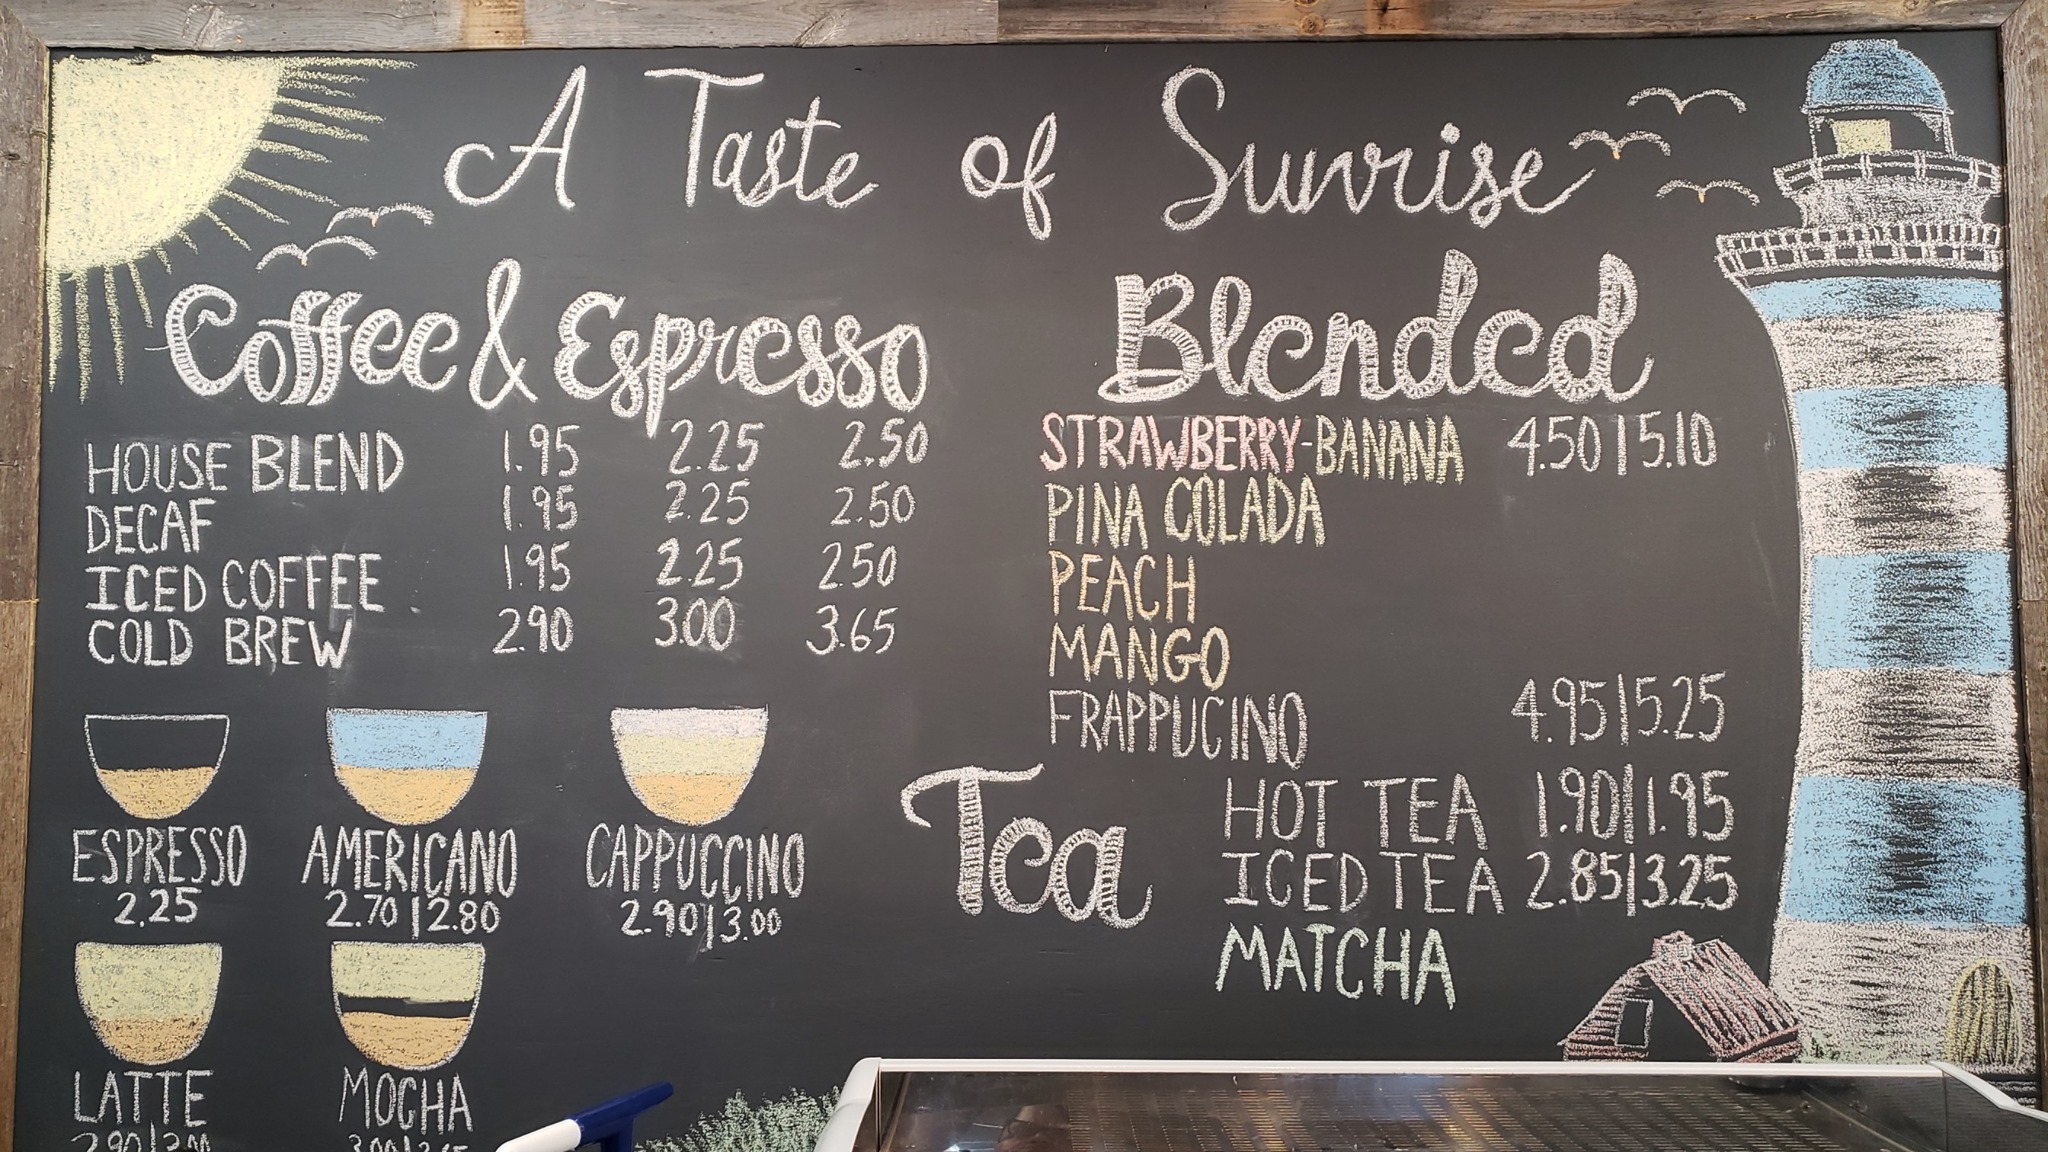 A Taste of Sunrise
Coffee & Espresso
HOUSE BLEND 1.95 2.25 2.50
DECAF 1.95 2.25 2.50
ICED COFFEE 1.95 2.25 2.50
COLD BREW 2.90 3.00 3.65
ESPRESSO
2.25
AMERICANO
2.70|2.80
CAPPUCCINO
2.90|3.00
LATTE
MOCHA
Blended
STRAWBERRY-BANANA 4.50|5.10
PINA COLADA
PEACH
MANGO
FRAPPUCINO 4.95|5.25
Tea
HOT TEA 1.90|1.95
ICED TEA 2.85|3.25
MATCHA